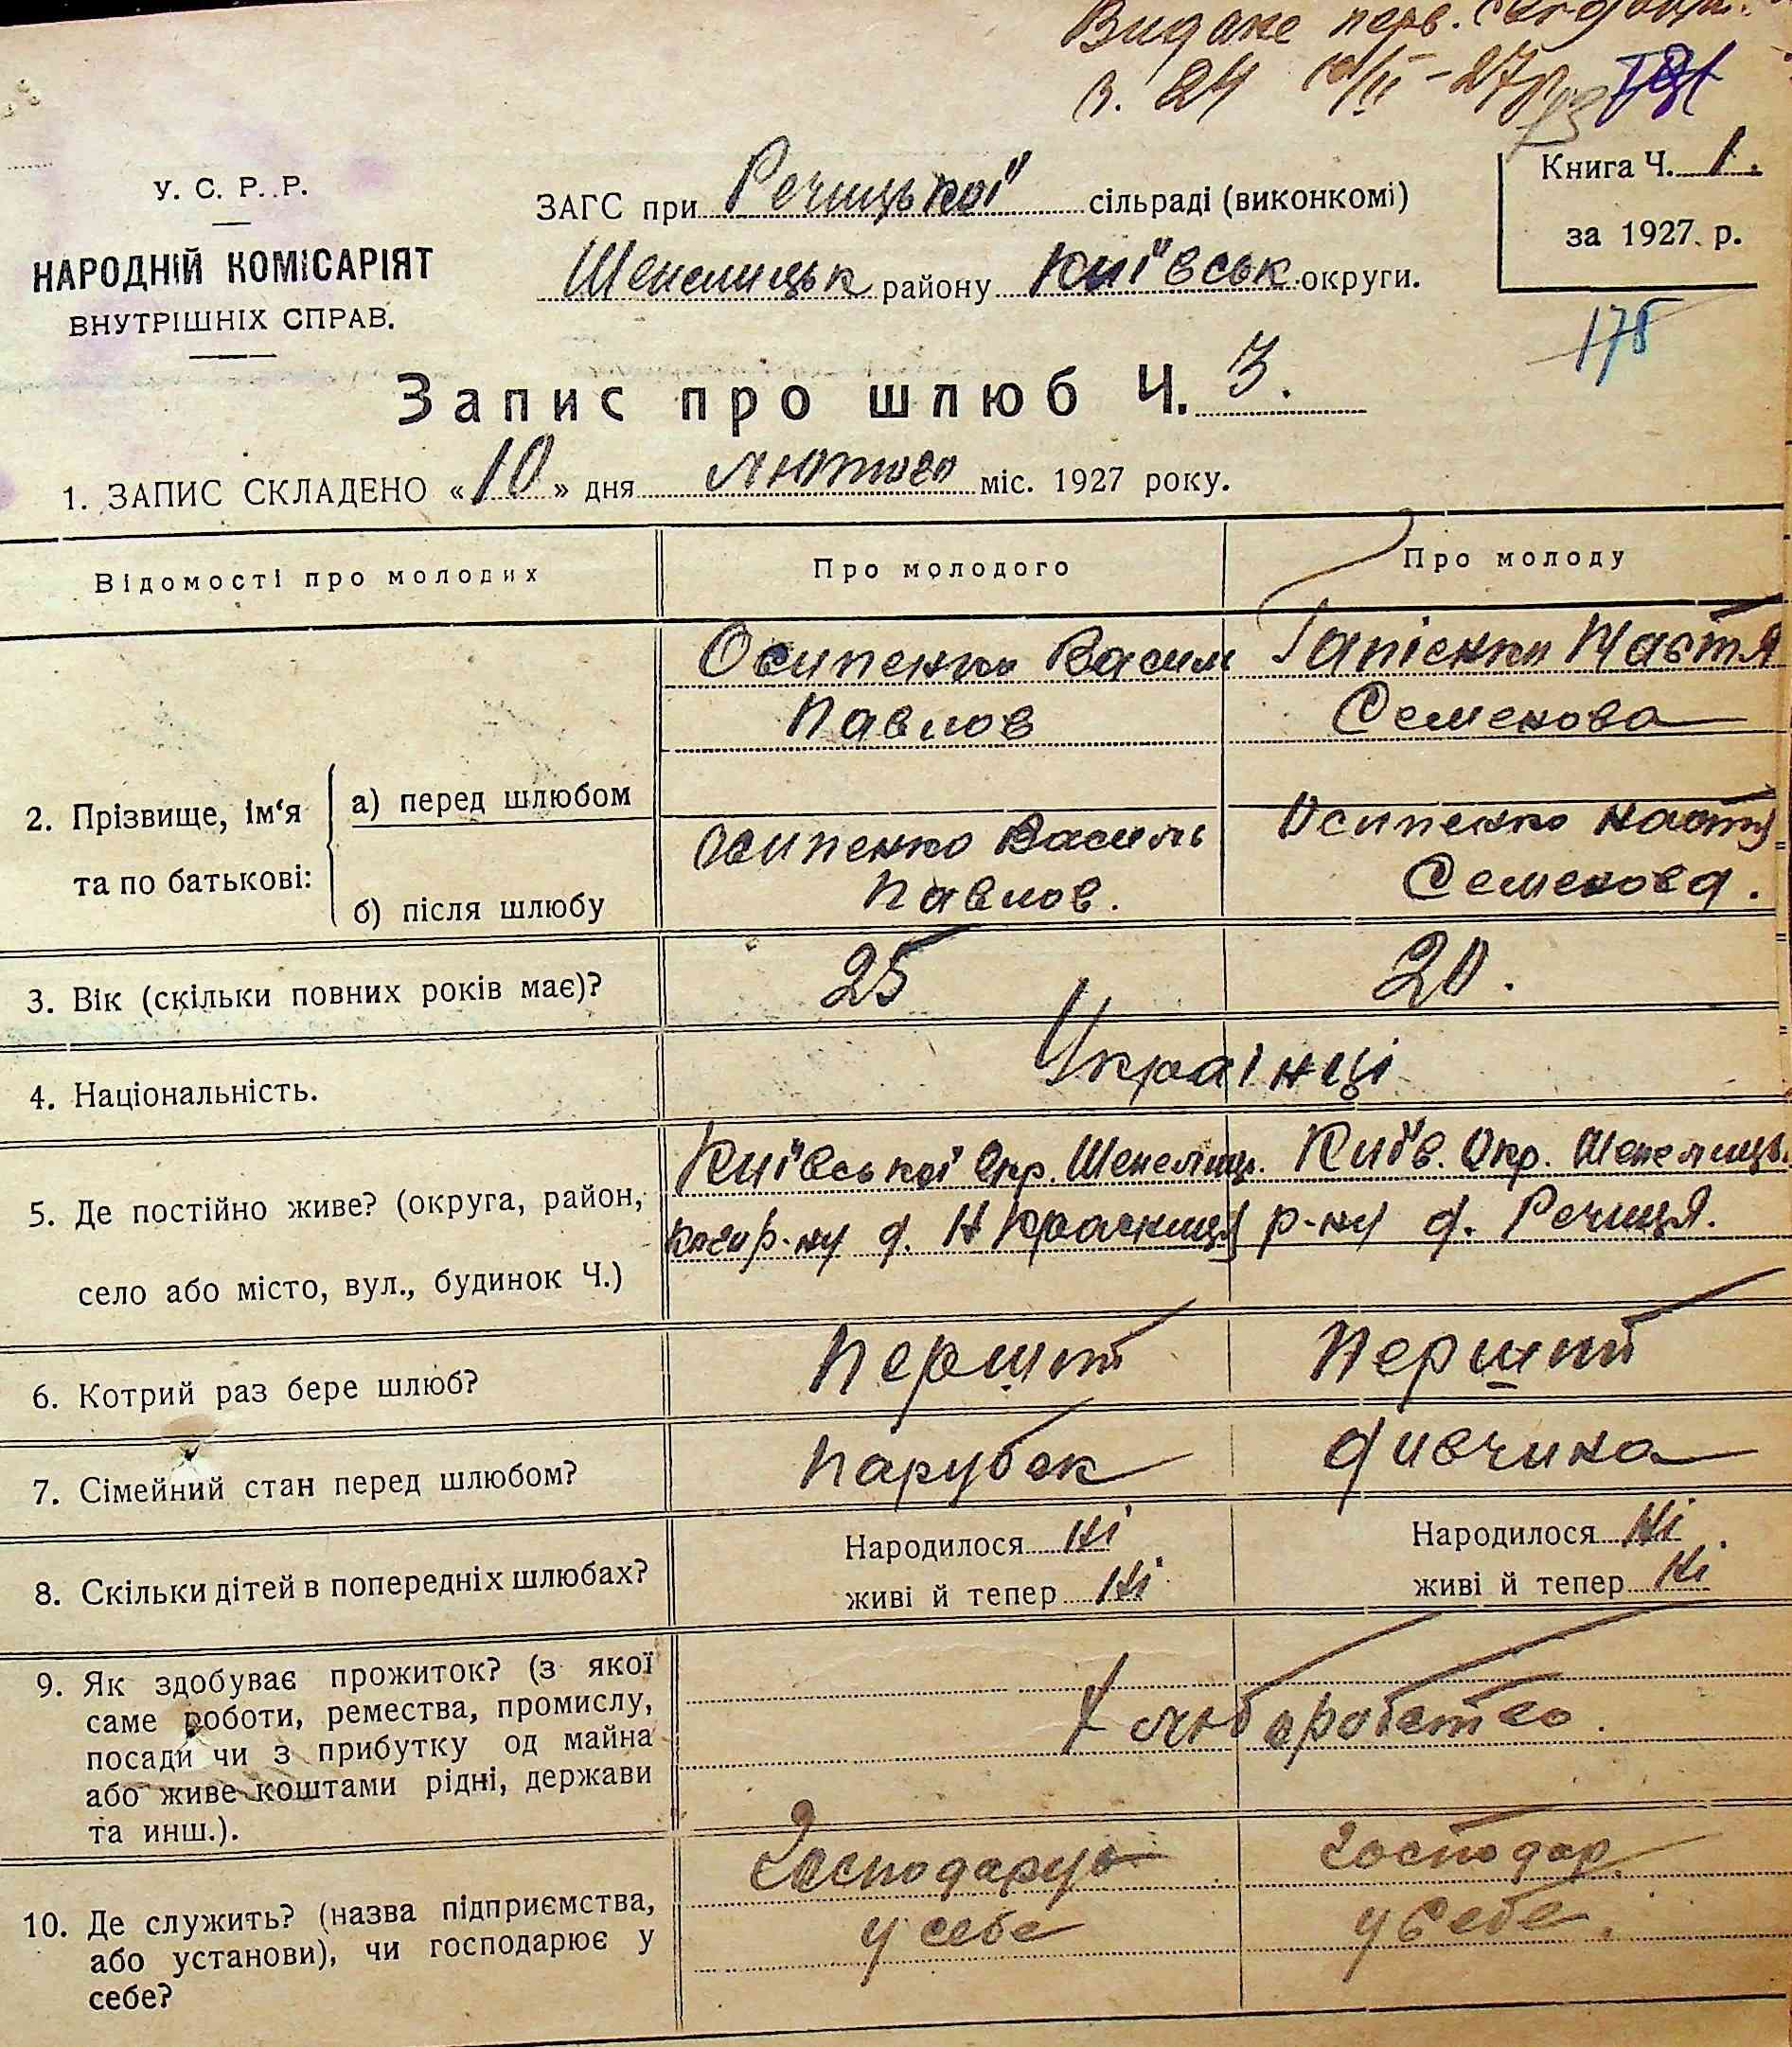 Видане перв.
з. 24 10/II-27р
Книга Ч. 1.
за 1927. р.
178
У. С. Р. Р.
НАРОДНІЙ КОМІСАРІЯТ
ВНУТРІШНІХ СПРАВ.
ЗАГС при Речицької сільраді (виконкомі)
Шепелицьк району Київськ округи.
Запис про шлюб Ч. 3.
1. ЗАПИС СКЛАДЕНО «10» дня лютого міс. 1927 року.
Відомості про молодих Про молодого Про молоду
2. Прізвище, ім‘я та по батькові:
а) перед шлюбом
Осипенко Васил Гапієнко Настя
Павлов Семенова
б) після шлюбу
Осипенко Василь Осипенко Настя
Павлов. Семенова.
3. Вік (скільки повних років має)? 25 20.
4. Національність. Українці
5. Де постійно живе? (округа, район, Київської Окр. Шепелиц. Київ. Окр. Шепелиць.
кого р-ну д. Н Красниця р-ну д. Речиця.
село або місто, вул., будинок Ч.)
6. Котрий раз бере шлюб? Перший Перший
7. Сімейний стан перед шлюбом? Парубок дивчина
8. Скільки дітей в попередніх шлюбах?
Народилося Ні Народилося Ні.
живі й тепер Ні живі й тепер Ні
9. Як здобуває прожиток? (з якої
саме роботи, ремества, промислу,
посади чи з прибутку од майна
або живе коштами рідні, держави
та инш.).
Хлюборобство.
10. Де служить? (назва підприємства,
або установи), чи господарює у
себе?
Господарує господар.
у себе у себе.